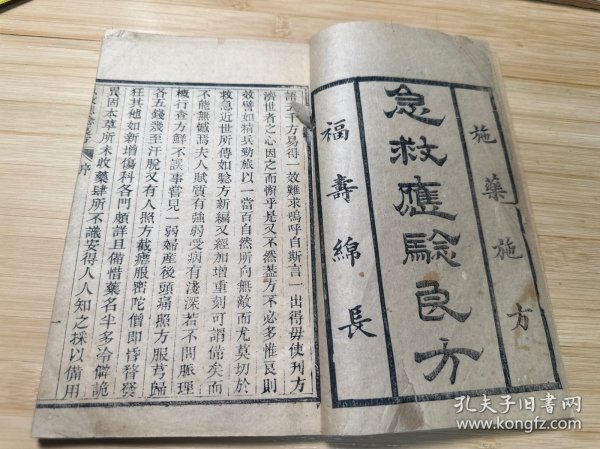 施藥施方
急救應驗良方
福壽綿長
語云千方易得一效難求嗚呼自斯言一出得毋使刋方
濟世者之心因之而懈乎是又不然蓋方不必多惟良則
效譬如精兵勁旅以一當百自然所向無敵而尤莫切於
救急近世所傳如騐方新編又經加增重刻可謂備矣而
不能無憾焉夫人賦質有強弱受病有淺深若不問脈理
概行查方鮮不誤事嘗見一弱婦產後頭痛照方服芎歸
各五錢幾至汗脫又有人照方截瘧服密陀僧即時發
狂其他如新增傷科各門頗詳且備惜藥名半多冷僻詭
異固本草所未收藥肆所不識安得人人知之採以備用
序
一
孔夫子旧书网
www.kongfz.com